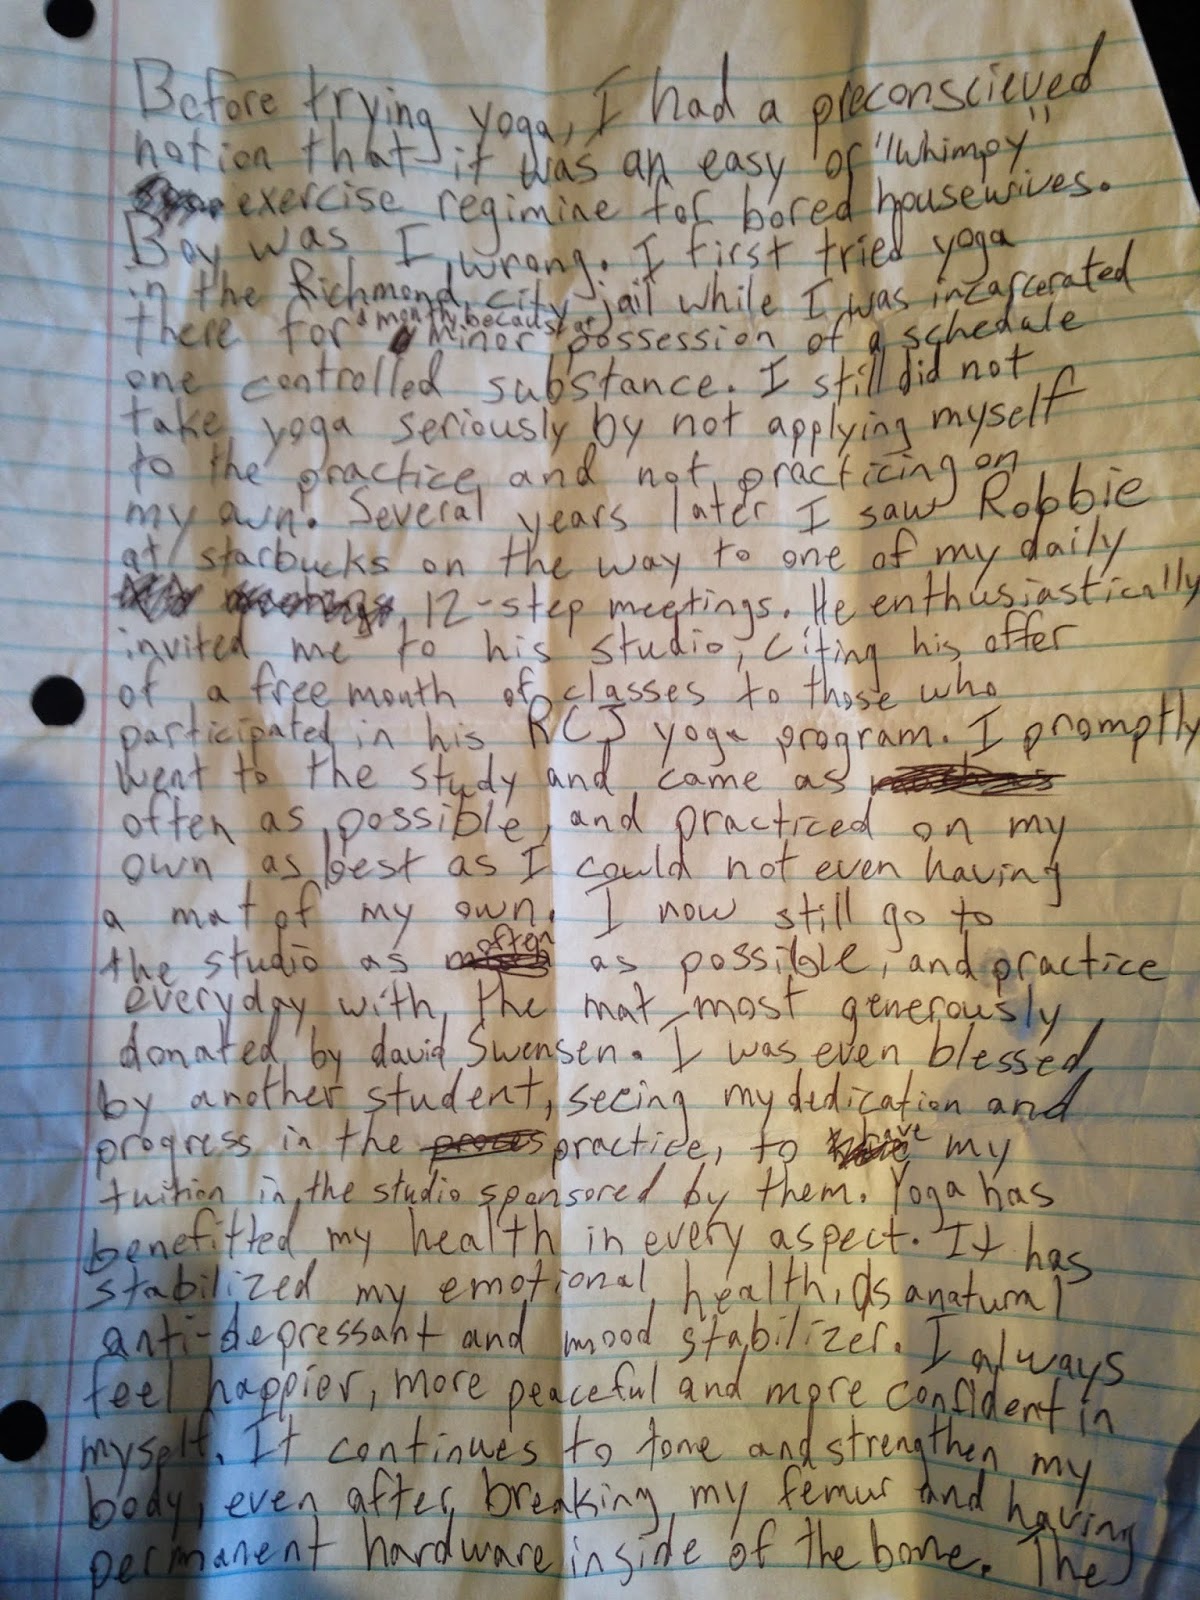 Before trying yoga, I had a preconscieved
notion that it was an easy or "whimpy"
exercise regimine for bored housewives.
Boy was I wrong. I first tried yoga
in the Richmond city jail while I was incarcerated
there for a month because of minor possession of a schedule
one controlled substance. I still did not
take yoga seriously by not applying myself
to the practice and not practicing on
my own. Several years later I saw Robbie
at starbucks on the way to one of my daily
12-step meetings. He enthusiastically
invited me to his studio, citing his offer
of a free month of classes to those who
participated in his RCJ yoga program. I promptly
went to the study and came as
often as possible, and practiced on my
own as best as I could not even having
a mat of my own. I now still go to
the studio as often as possible, and practice
everyday with the mat most generously
donated by david Swensen. I was even blessed
by another student, seeing my dedication and
progress in the practice, to have my
tuition in the studio sponsored by them. Yoga has
benefitted my health in every aspect. It has
stabilized my emotional health, as a natural
anti-depressant and mood stabilizer. I always
feel happier, more peaceful and more confident in
myself. It continues to tone and strengthen my
body, even after breaking my femur and having
permanent hardware inside of the bone. The